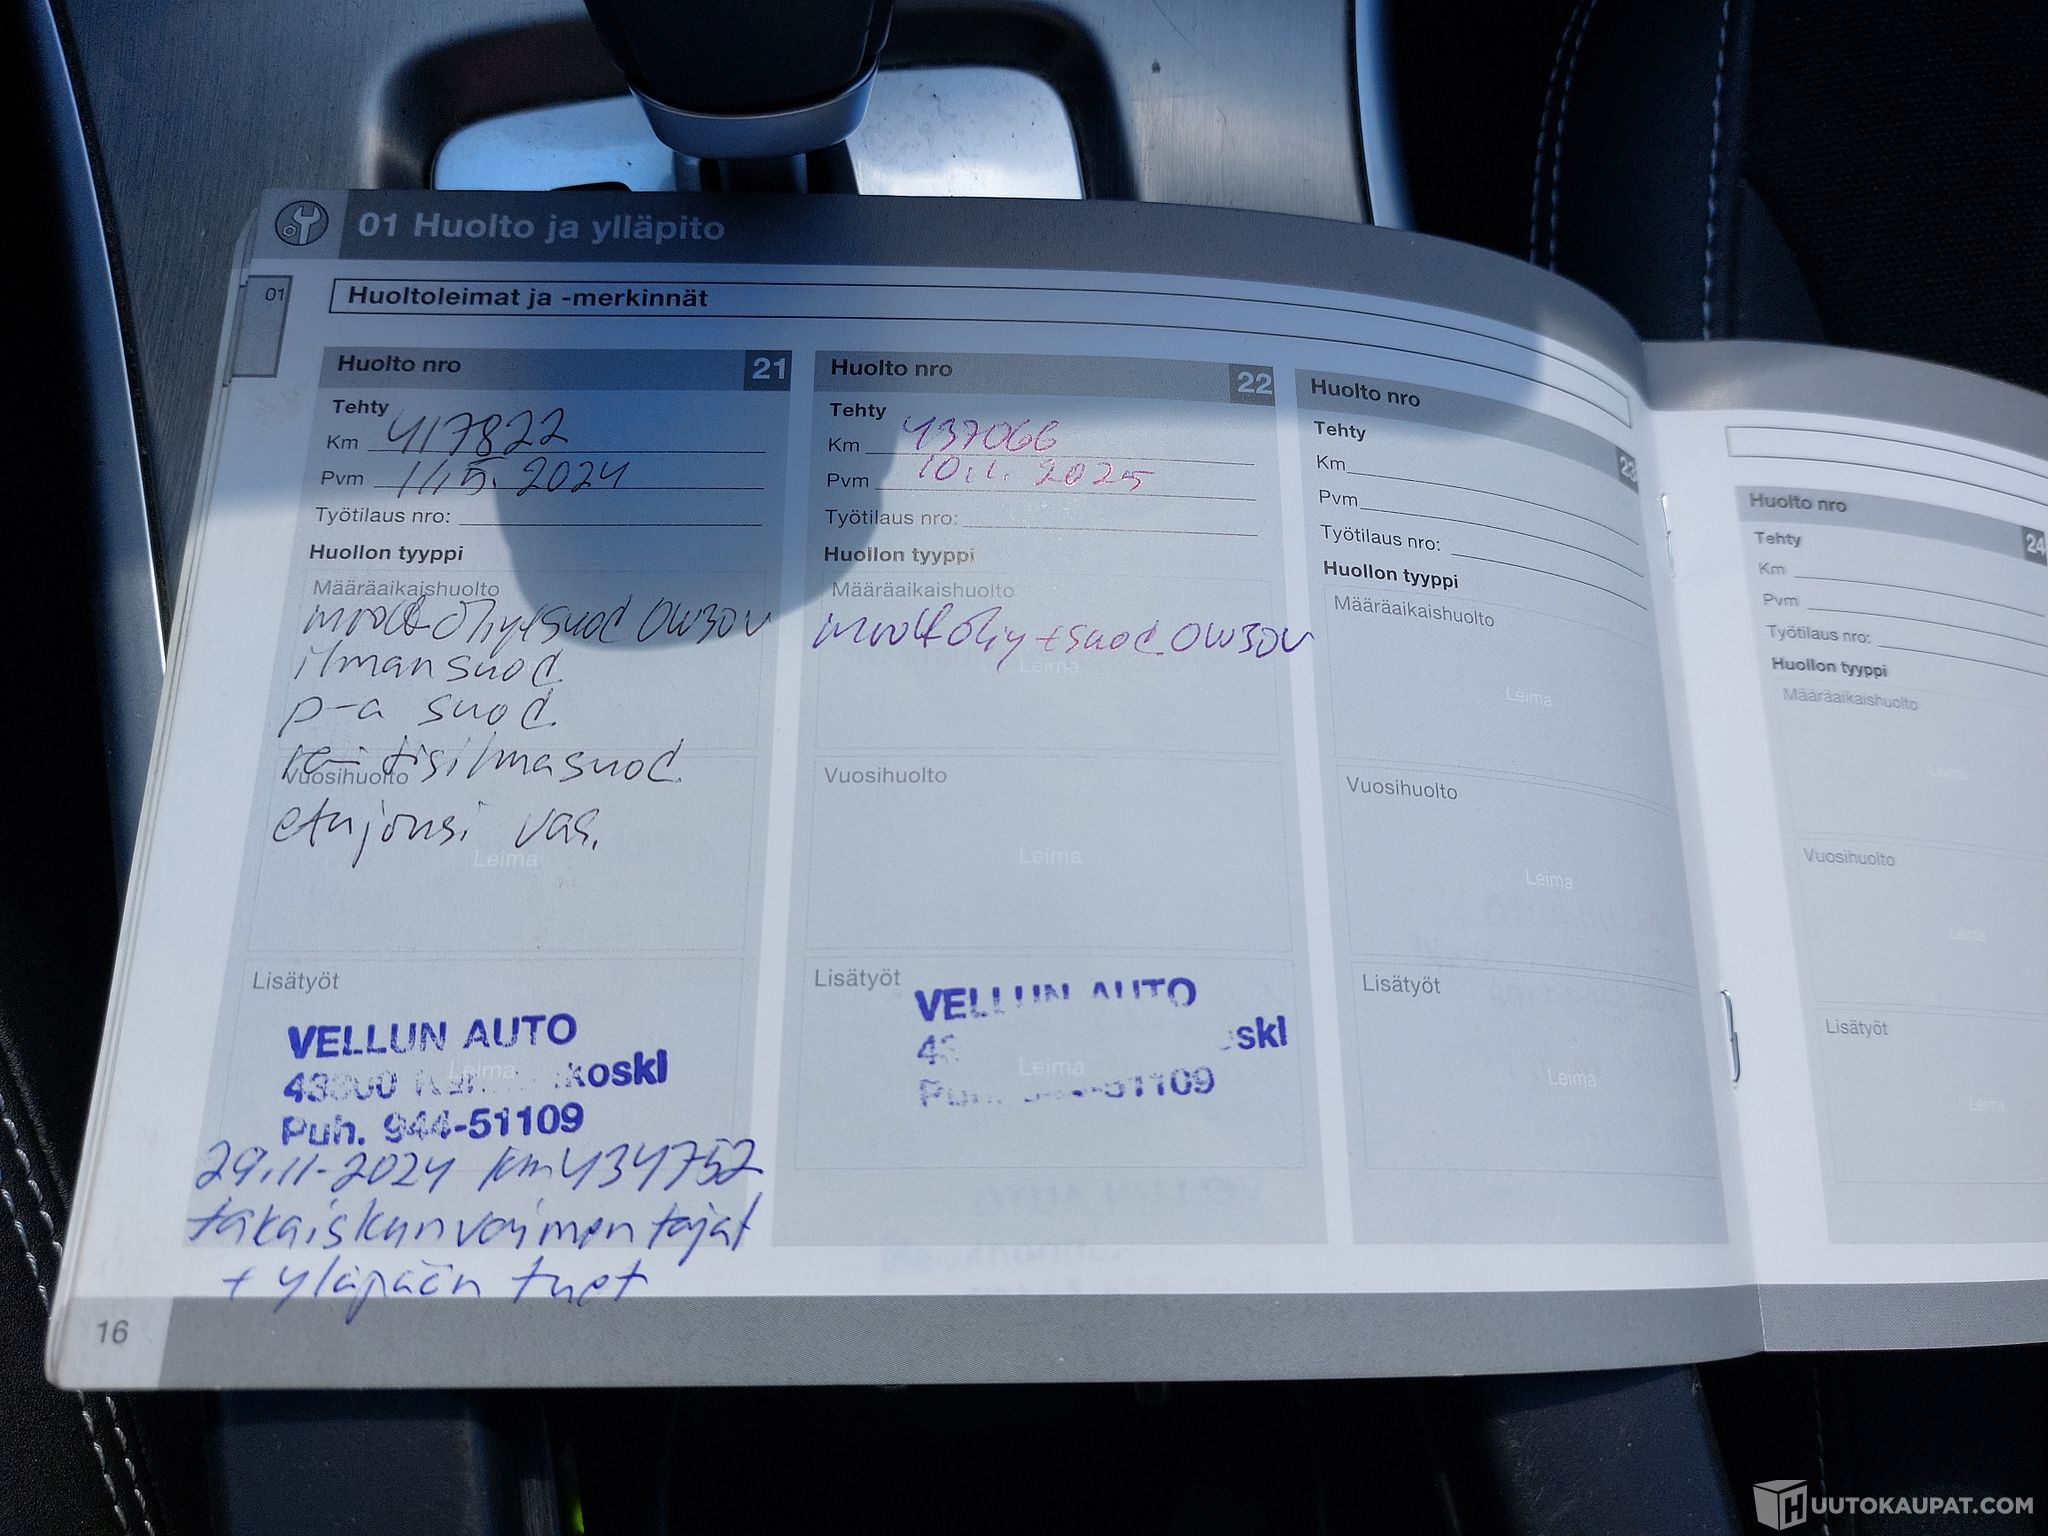 01 Huolto ja ylläpito
01
Huoltoleimat ja -merkinnät
Huolto nro 21
Tehty
Km 417822
Pvm 11.5.2024
Työtilaus nro:
Huollon tyyppi
Määräaikaishuolto
moott öljy+suod 0W30V
ilmansuod.
p-a suod.
raitisilmasuod.
Vuosihuolto
etujousi vas.
Leima
Lisätyöt
VELLUN AUTO
Leima
koskI
Puh. 944-51109
29.11-2024 km 434752
takaiskunvaimentajat
+ yläpään tuet
16
Huolto nro 22
Tehty
Km 437066
Pvm 10.1.2025
Työtilaus nro:
Huollon tyyppi
Määräaikaishuolto
moott öljy+suod 0W30V
Leima
Vuosihuolto
Leima
Lisätyöt
VELLUN AUTO
skI
Leima
51109
Huolto nro 23
Tehty
Km
Pvm
Työtilaus nro:
Huollon tyyppi
Määräaikaishuolto
Leima
Vuosihuolto
Leima
Lisätyöt
Leima
Huolto nro 24
Tehty
Km
Pvm
Työtilaus nro:
Huollon tyyppi
Määräaikaishuolto
Leima
Vuosihuolto
Leima
Lisätyöt
Leima
HUUTOKAUPAT.COM